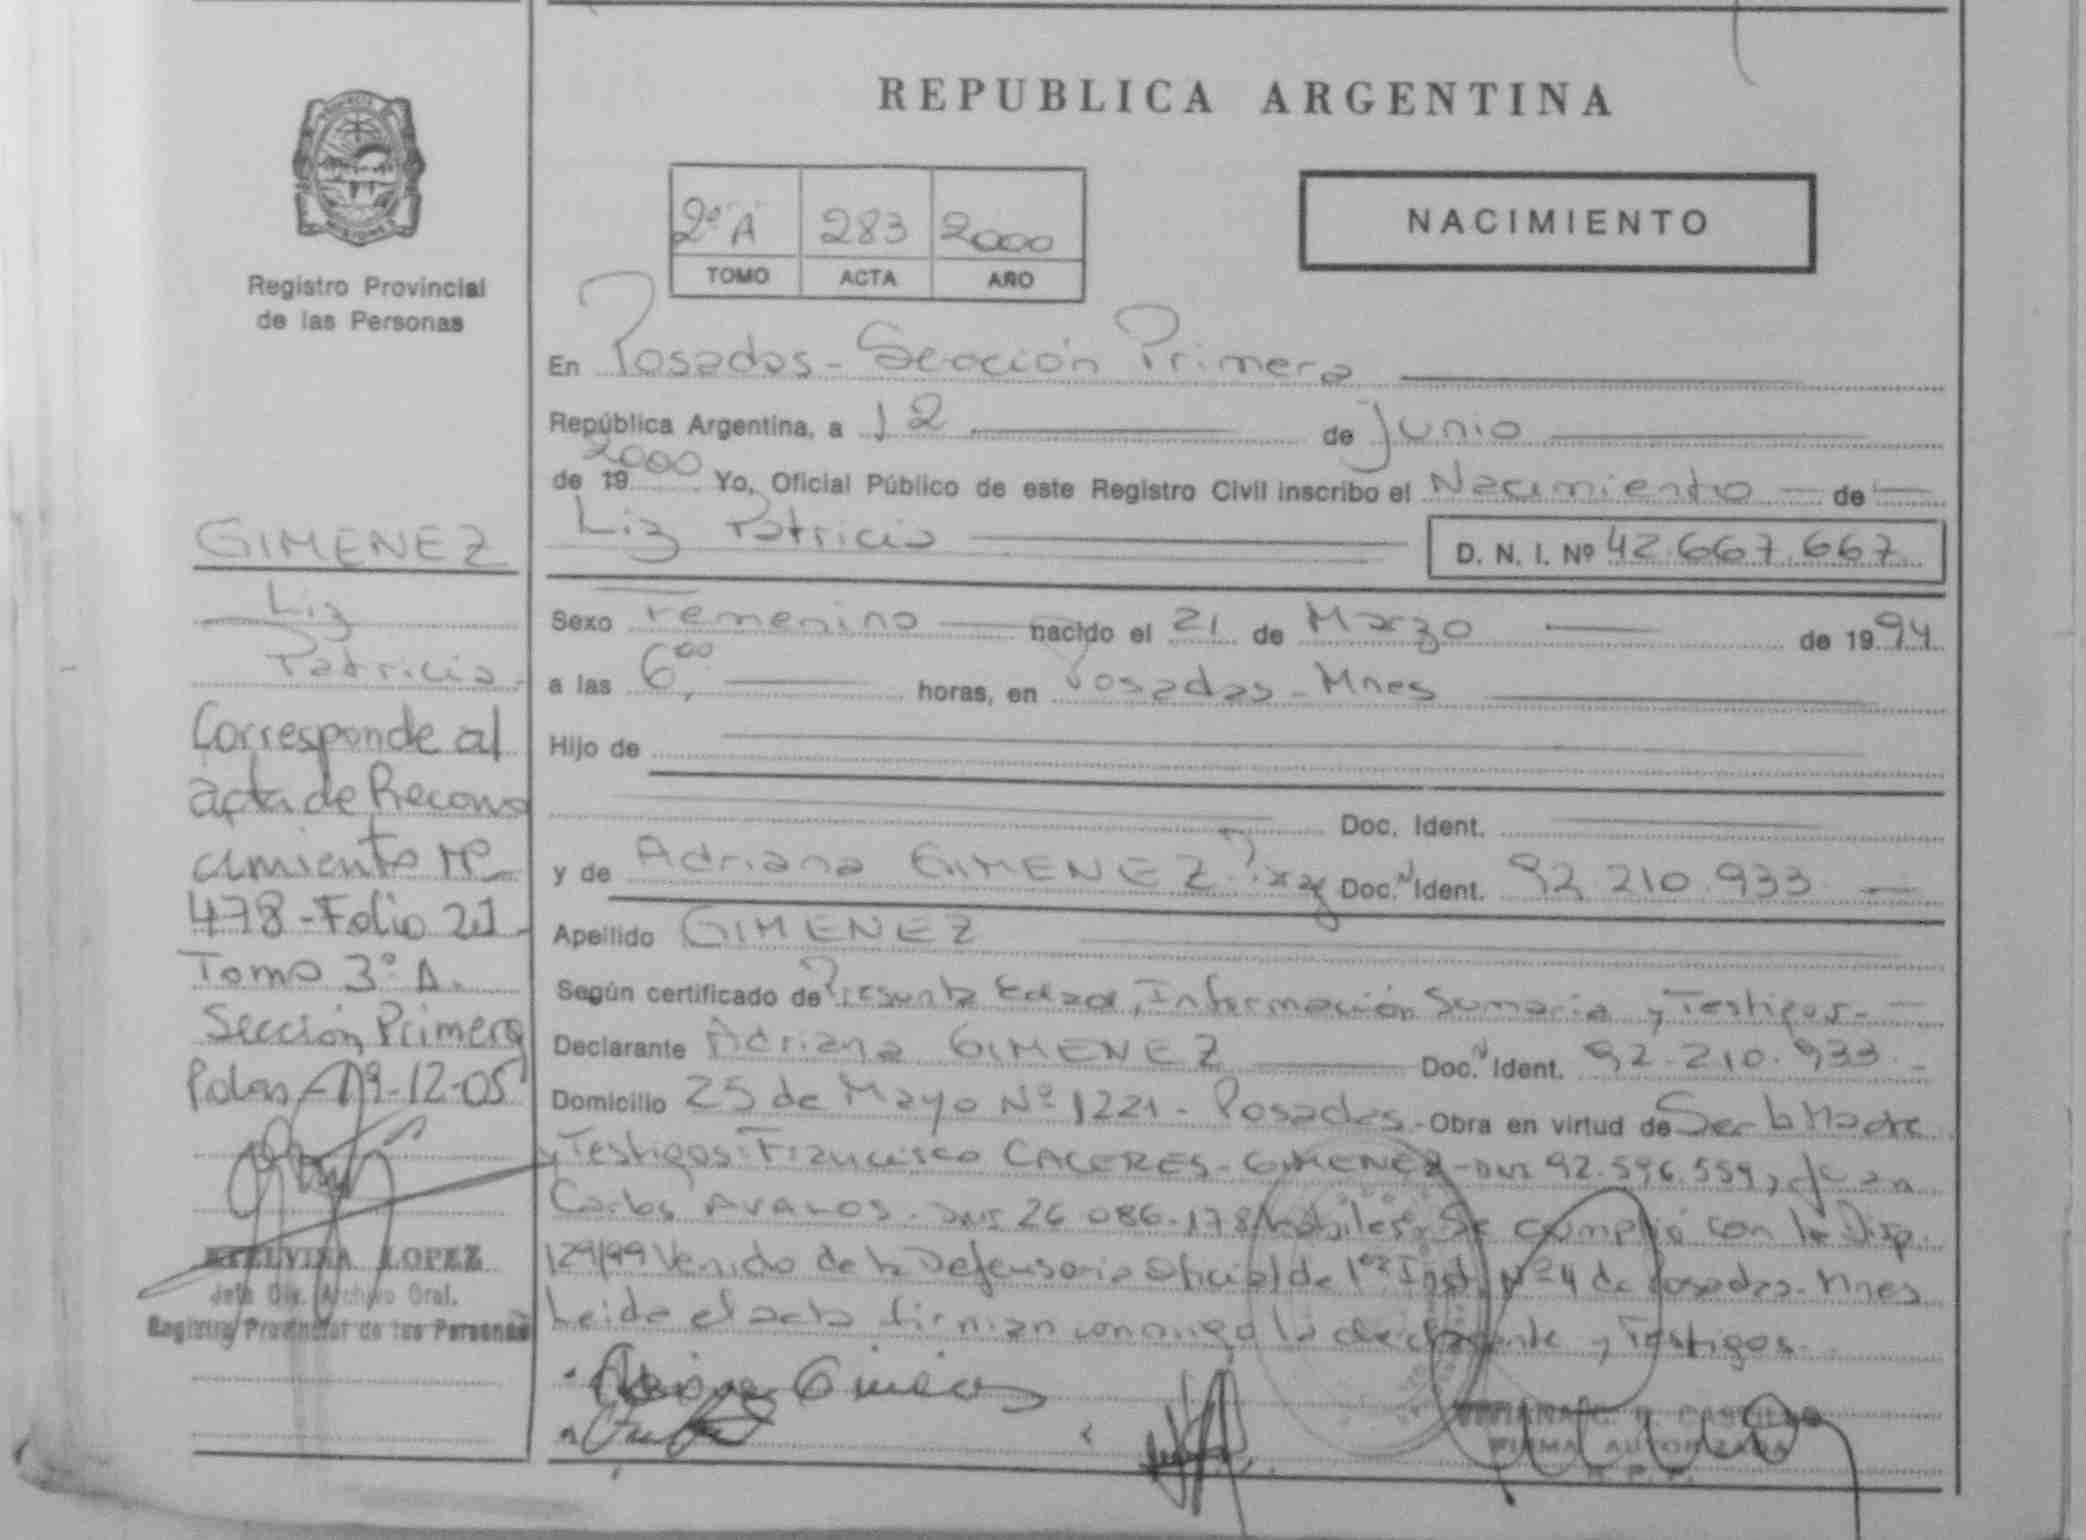 REPUBLICA ARGENTINA
NACIMIENTO
2º A 283 2000
TOMO ACTA AÑO
Registro Provincial
de las Personas
GIMENEZ
Liz
Patricia
Corresponde al
acta de Recono
cimiento Nº
478 - Folio 21
Tomo 3º A.
Sección Primera
Pdas - 19-12-05
ETELVINA LOPEZ
Jefa Div. Archivo Gral.
Registro Provincial de las Personas
En Posadas - Sección Primera
República Argentina, a 12 de Junio
de 19 2000 Yo, Oficial Público de este Registro Civil inscribo el Nacimiento de
Liz Patricia D. N. I. Nº 42.667.667
Sexo Femenino nacido el 21 de Marzo de 1994
a las 6,00 horas, en Posadas - Mnes
Hijo de
Doc. Ident.
y de Adriana GIMENEZ Doc. Ident. 92 210.933
Apellido GIMENEZ
Según certificado de Presunta Edad, Información Sumaria y Testigos -
Declarante Adriana GIMENEZ Doc. Ident. 92.210.933
Domicilio 25 de Mayo Nº 1221 - Posadas - Obra en virtud de Ser la Madre
y Testigos: Francisco CACERES - GIMENEZ - DNI 92.596.559, y Juan
Carlos AVALOS - DNI 26 086.178 habiles. Se cumplió con la Disp.
129/99 Venido de la Defensoria Oficial de 1ra Inst. Nº 4 de Posadas - Mnes
Leida el acta firman conmigo la declarante y Testigos -
Adriana Gimenez
VIVIANA C. R. CASTILLO
FIRMA AUTORIZADA
R. P. P.